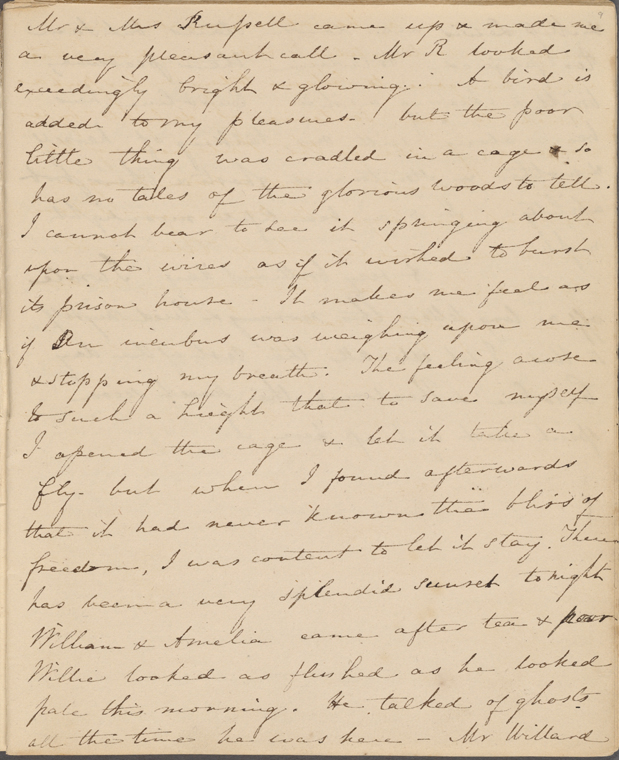 Mr & Mrs Russell came up & made me
a very pleasant call - Mr R looked
exceedingly bright & glowing. A bird is
added to my pleasures - but the poor
little thing was cradled in a cage & so
has no tales of the glorious woods to tell.
I cannot bear to see it springing about
upon the wires as if it wished to burst
its prison house - It makes me feel as
if an incubus was weighing upon me
& stopping my breath. The feeling arose
to such a height that to save myself
I opened the cage & let it take a
fly - but when I found afterwards
that it had never known the bliss of
freedom, I was content to let it stay. There
has been a very splendid sunset tonight
William & Amelia came after tea & poor
Willie looked as flushed as he looked
pale this morning. He talked of ghosts
all the time he was here - Mr Willard